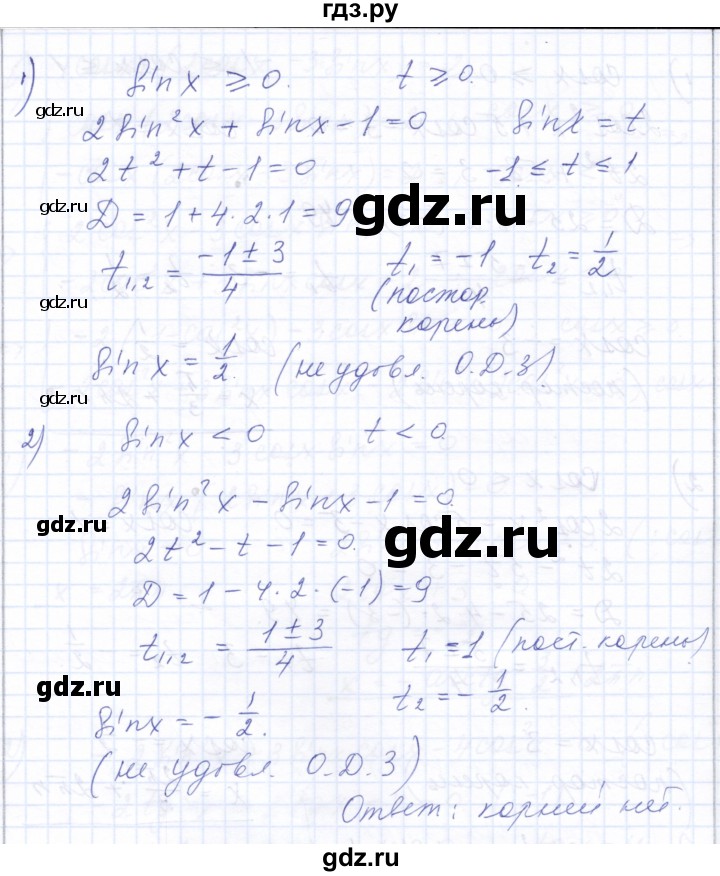 гдз.ру
1) sin x ≥ 0. t ≥ 0.
gdz.ru
2 sin² x + sin x - 1 = 0 sin x = t
2t² + t - 1 = 0 -1 ≤ t ≤ 1
gdz.ru
D = 1 + 4 · 2 · 1 = 9
gdz.ru
t₁,₂ = (-1 ± 3)/4 t₁ = -1 t₂ = 1/2
gdz.ru
(постор. корень)
sin x = 1/2. (не удовл. О.Д.З)
gdz.ru
2) sin x < 0 t < 0.
2 sin² x - sin x - 1 = 0.
gdz.ru
gdz.ru
2t² - t - 1 = 0.
D = 1 - 4 · 2 · (-1) = 9
t₁,₂ = (1 ± 3)/4 t₁ = 1 (пост. корень)
gdz.ru
t₂ = -1/2.
sin x = -1/2.
(не удовл. О.Д.З)
Ответ: корней нет.
gdz.ru